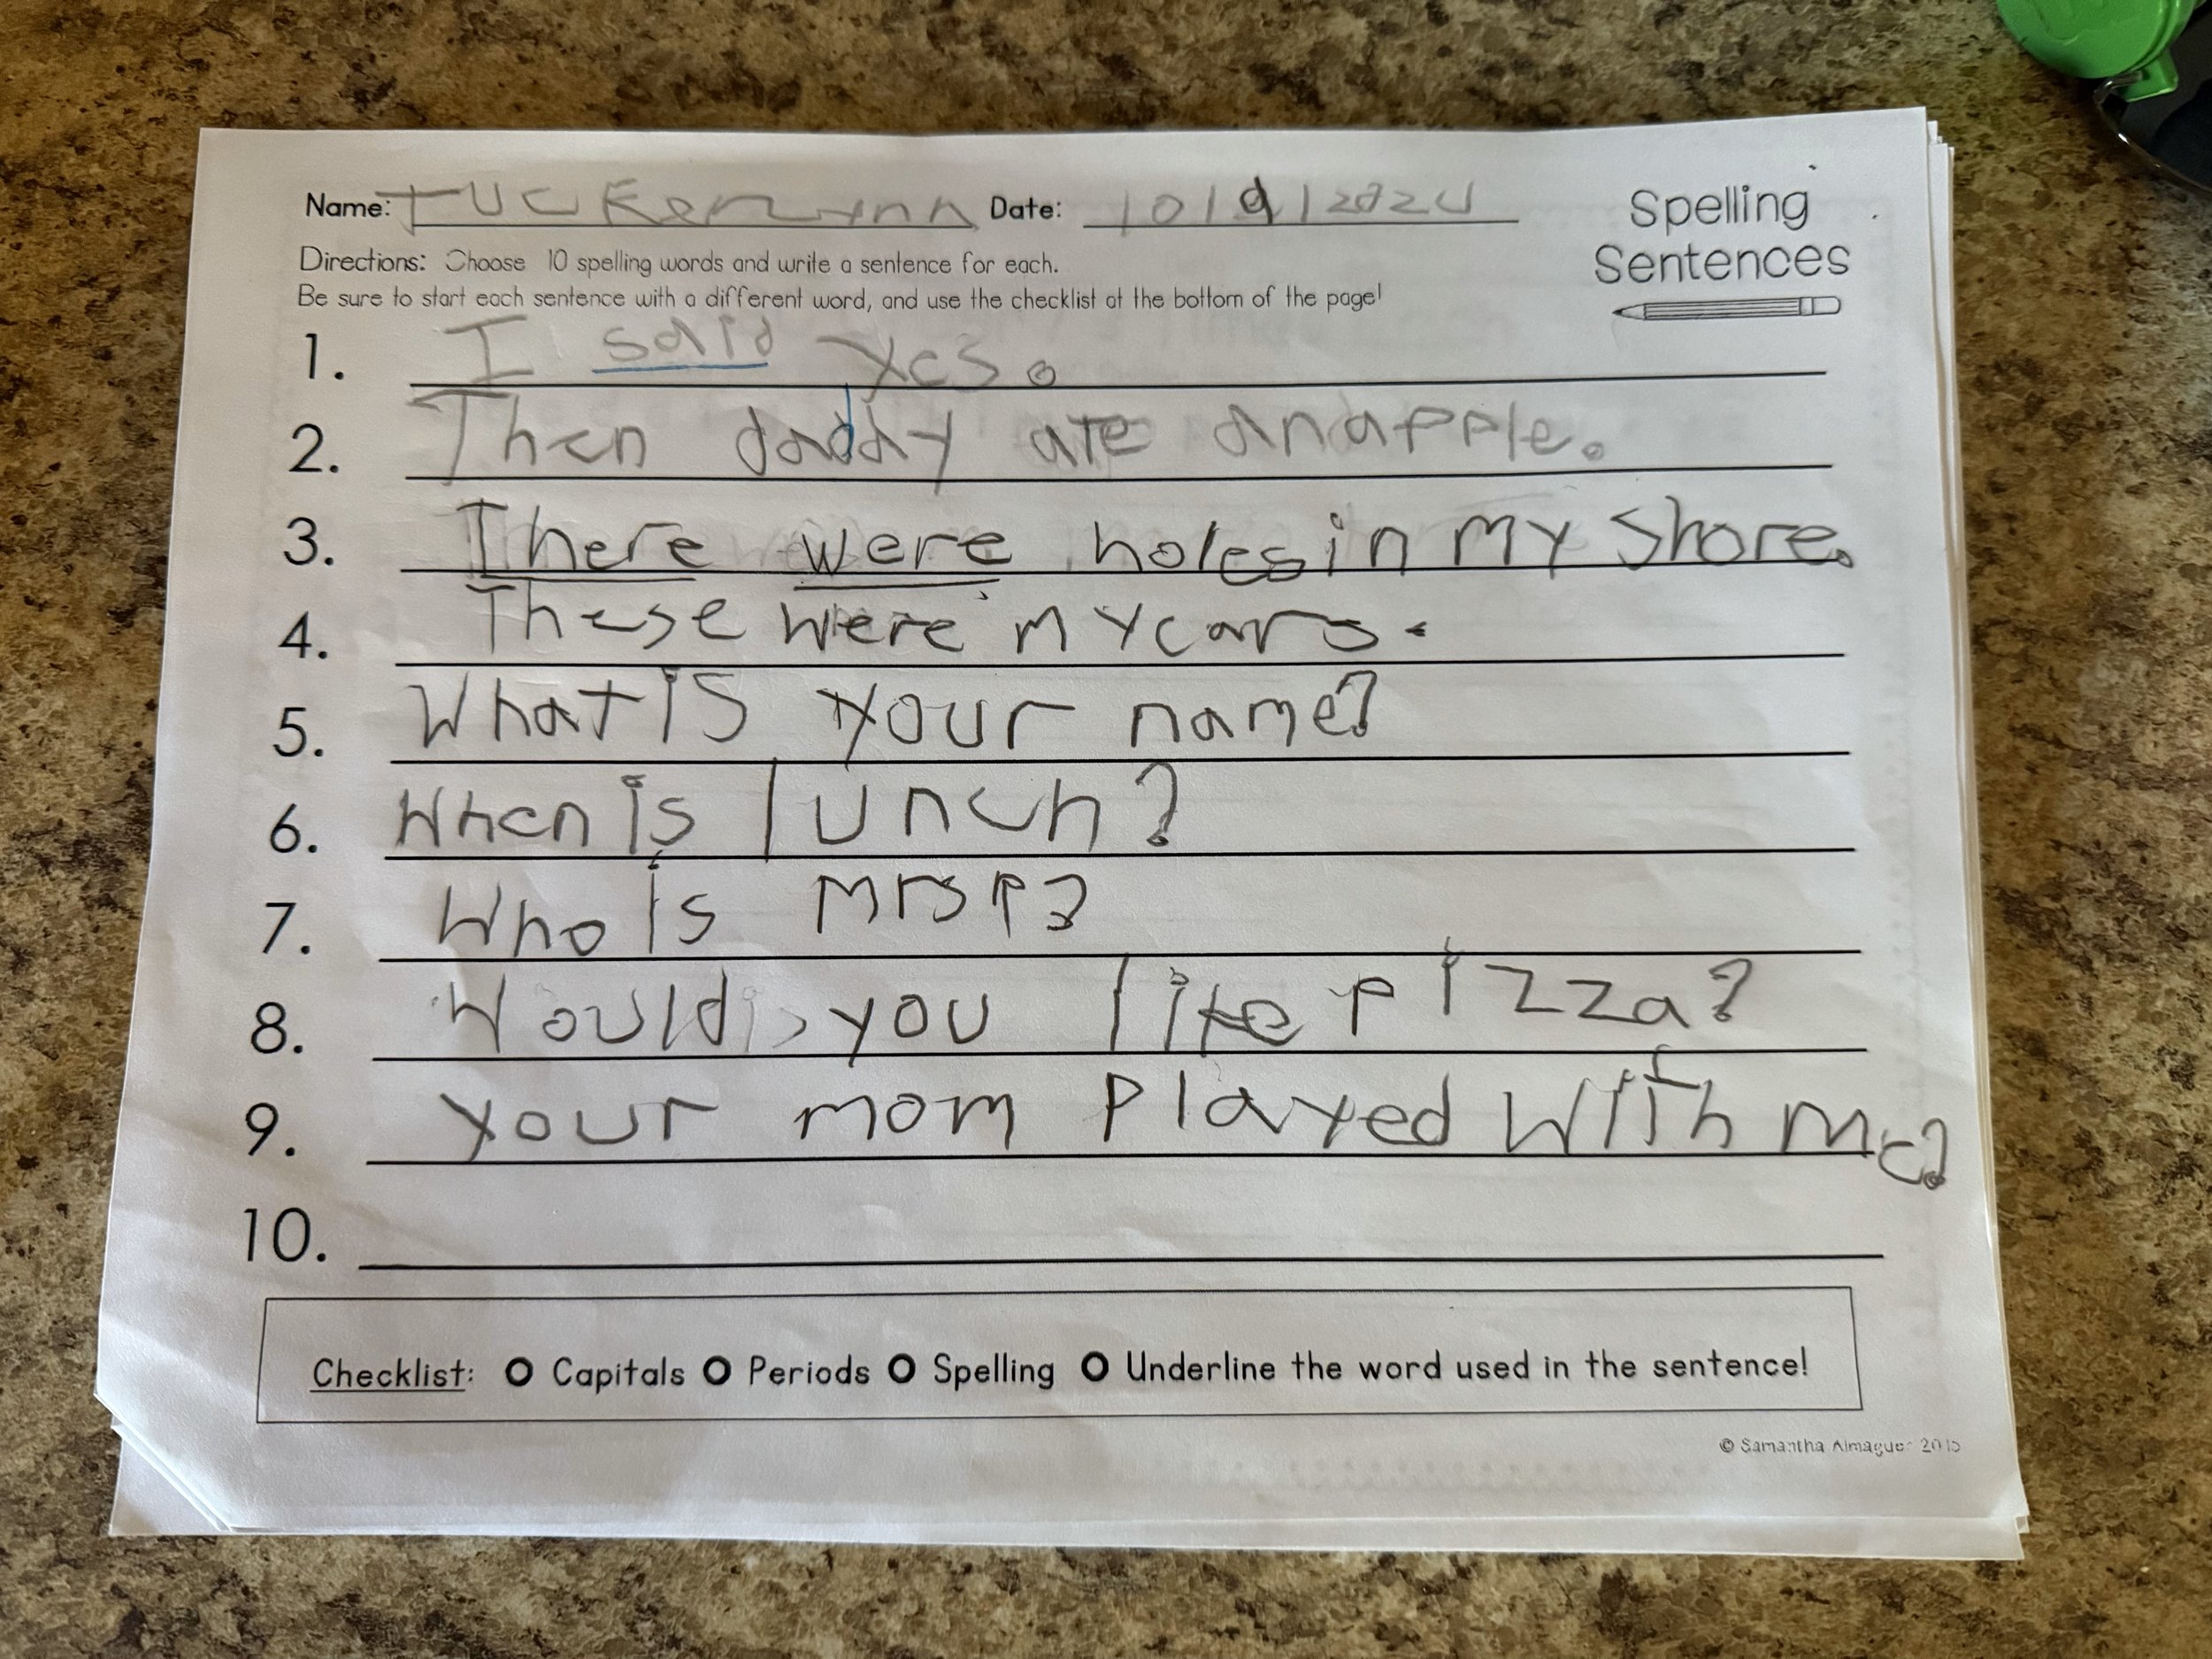 Name: Tucker Lynn Date: 10/9/2024
Spelling Sentences
Directions: Choose 10 spelling words and write a sentence for each.
Be sure to start each sentence with a different word, and use the checklist at the bottom of the page!
1. I said yes.
2. Then daddy ate an apple.
3. There were holes in my Shore.
4. These were my cars.
5. What is your name?
6. When is lunch?
7. Who is Mrs P?
8. Would you like pizza?
9. your mom played with me?
10.
Checklist: O Capitals O Periods O Spelling O Underline the word used in the sentence!
© Samantha Almaguer 2015